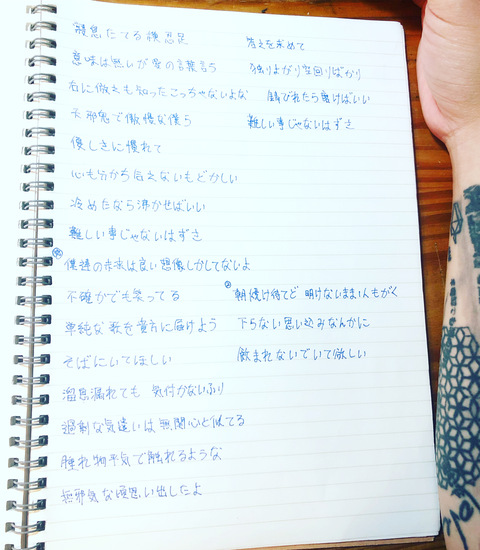 寝息たてる横
意味は無いが愛の言葉言う
右に倣えも知ったこっちゃないよな
天邪鬼で傲慢な僕ら
優しさに慣れて
心も分から合えないもどかしい
冷めたなら沸かせばいい
難しい事じゃないはずさ
僕達の未来は良い想像しかしてないよ
不確かでも笑ってる
単純な歌を貴方に届けよう
そばにいてほしい
溜息漏れても 気付かないふり
過剰な気遣いは無関心と似てる
腫れ物平気で触れるような
無邪気な頃思い出したよ
答えを求めて
独りよがり空回りばかり
錆びれたら磨けばいい
難しい事じゃないはずさ
朝焼け待てど 明けないままもがく
下らない思い込みなんかに
飲まれないでいて欲しい